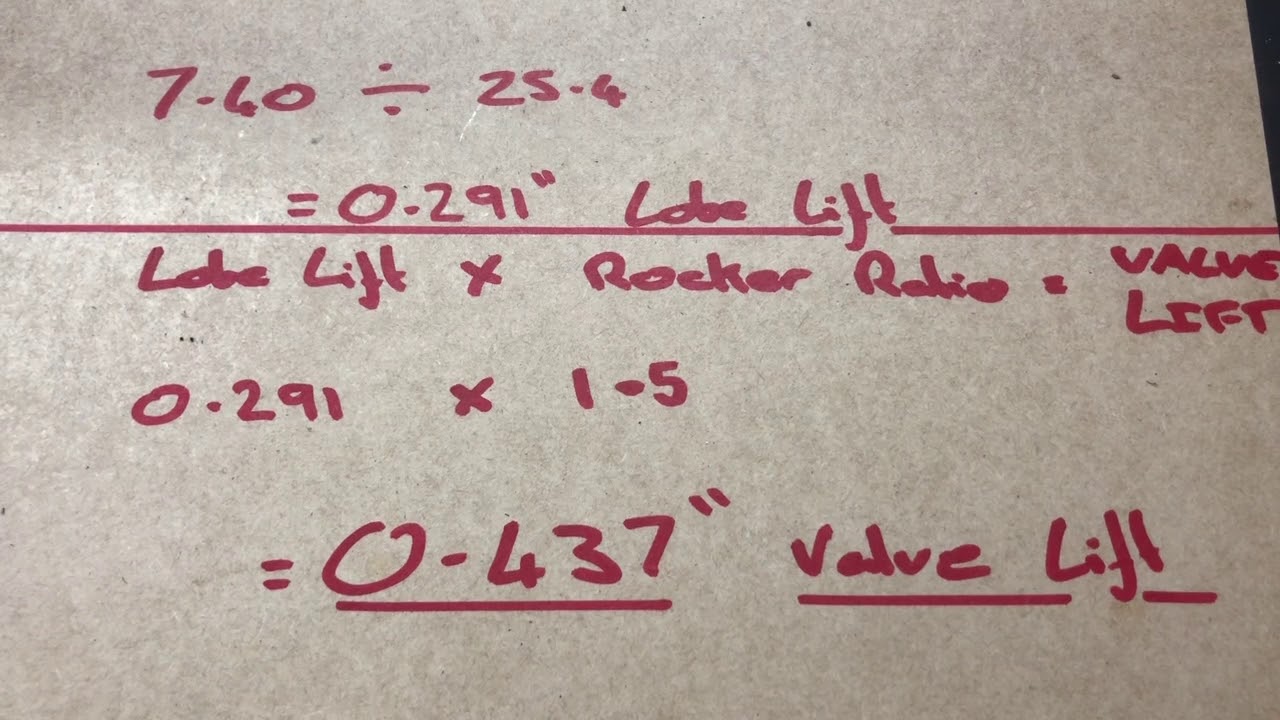 7.40 ÷ 25.4
= 0.291" Lobe Lift
Lobe Lift x Rocker Ratio = VALVE
LIFT
0.291 x 1.5
= 0.437" Valve Lift